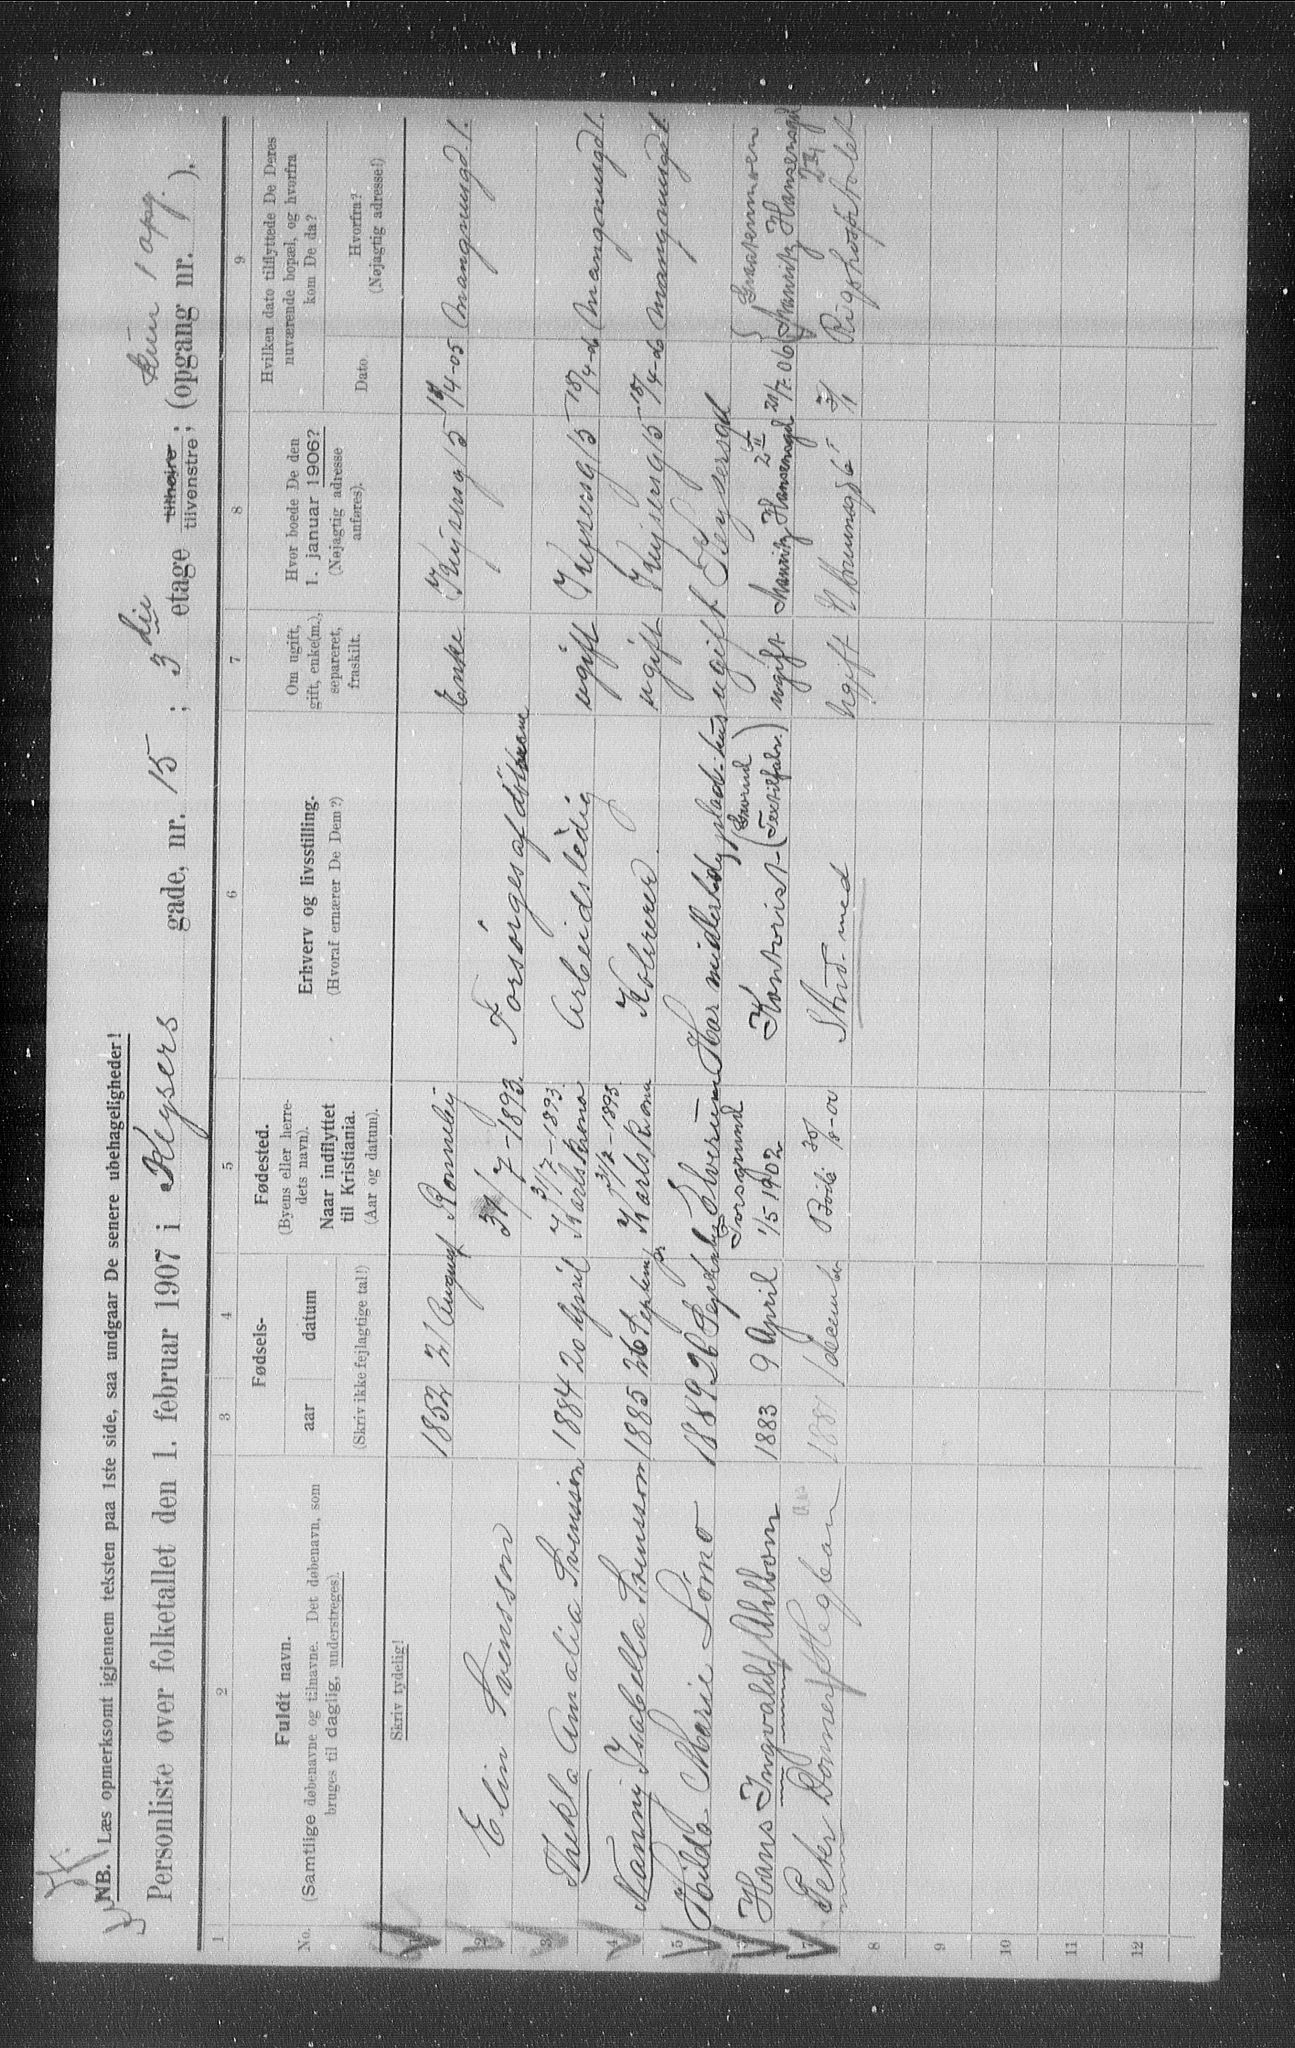 NB. Læs opmerksomt igjennem teksten paa 1ste side, saa undgaar De senere ubehageligheder!
Kun 1 opg.
Personliste over folketallet den 1. februar 1907 i Keysers gade, nr. 15 ; 3die etage tilhøire tilvenstre ; (opgang nr. ).
1 2 3 4 5 6 7 8 9
No.
Fuldt navn.
(Samtlige døbenavne og tilnavne. Det døbenavn, som
bruges til daglig, understreges).
Fødsels-
aar
datum
(Skriv ikke fejlagtige tal!)
Fødested.
(Byens eller herre-
dets navn).
Naar indflyttet
til Kristiania.
(Aar og datum).
Erhverv og livsstilling.
(Hvoraf ernærer De Dem?)
Om ugift,
gift, enke(m.),
separeret,
fraskilt.
Hvor boede De den
1. januar 1906?
(Nøjagtig adresse
anføres).
Hvilken dato tilflyttede De Deres
nuværende bopæl, og hvorfra
kom De da?
Dato
Hvorfra?
(Nøjagtig adresse!)
Skriv tydelig!
1852 21 August Ronneby Enke Keysersg 15 /4-05 Mangnusgd. 1.
2 Elin Svensson 31/7-1893. Forsørges af døtrene
31/7-1893.
3 Thekla Amalia Svensson 1884 20 April Karlskrona Arbeidsledig ugift Keysersg 15 18/4-06 Mangnusgd 1.
31/7-1893.
4 Nanny Isabella Svensson 1885 26 Septemr. Karlskrona Kolorerer ugift Keysersg 15 18/4-06 Mangnusgd 1.
5 Hilda Marie Lömo 1889 26 September Elverum Har midlertidig plads. hus ugift Keysersgd
6 Hans Ingvald Ahlbom 1883 9 April Porsgrund 1/5 1902 Kontorist (Textilfabr.) ugift Mauritz Hansensgd 2 II 21/7.06 Mauritz Hansensgd 2 III
7 Peter Heglan 1 december Bodö 30/8-00 Stud. med Ugift 3/1 Rigshospitalet
8
9
10
11
12